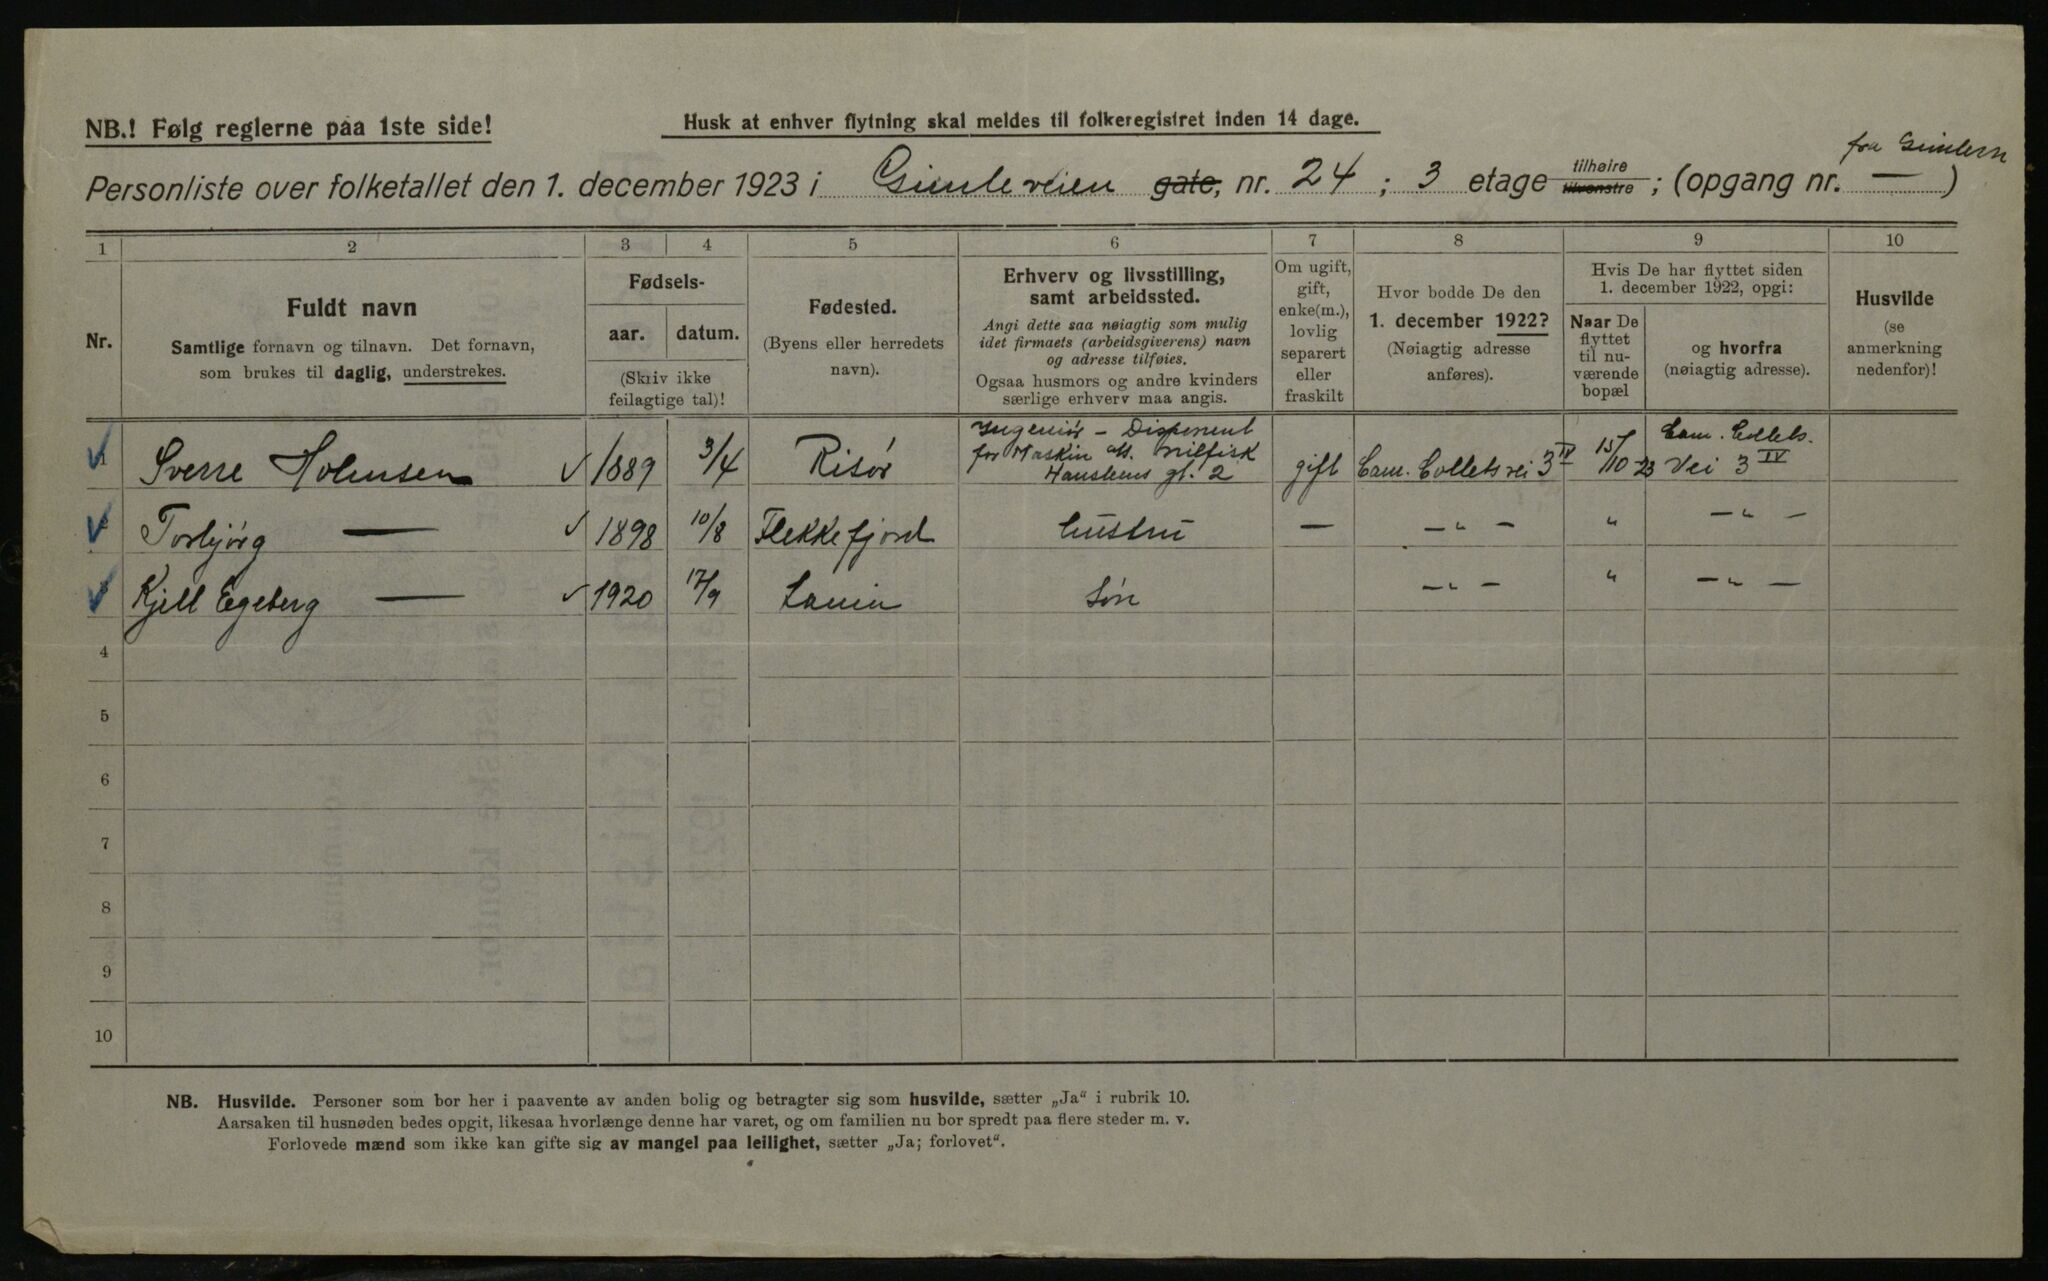 NB.! Følg reglerne paa 1ste side!
Husk at enhver flytning skal meldes til folkeregistret inden 14 dage.
fra
Personliste over folketallet den 1. december 1923 i Gimleveien gate, nr. 24 ; 3 etage tilhøire tilvenstre ; (opgang nr. — )
1 2 3 4 5 6 7 8 9 10
Nr.
Fuldt navn
Samtlige fornavn og tilnavn. Det fornavn,
som brukes til daglig, understrekes.
Fødsels-
aar. datum.
(Skriv ikke
feilagtige tal)!
Fødested.
(Byens eller herredets
navn).
Erhverv og livsstilling,
samt arbeidssted.
Angi dette saa nøiagtig som mulig
idet firmaets (arbeidsgiverens) navn
og adresse tilføies.
Ogsaa husmors og andre kvinders
særlige erhverv maa angis.
Om ugift,
gift,
enke(m.),
lovlig
separert
eller
fraskilt
Hvor bodde De den
1. december 1922?
(Nøiagtig adresse
anføres).
Hvis De har flyttet siden
1. december 1922, opgi:
Naar De
flyttet
til nu-
værende
bopæl
og hvorfra
(nøiagtig adresse).
Husvilde
(se
anmerkning
nedenfor)!
Sverre Holmsen 1889 3/4 Risør
Ingeniør – Disponent
for Maskin A/S. Nilfisk
Hansteens gt. 2
gift Cam. Colletsvei 3 IV 15/10 23
Cam. Collets.
Vei 3 IV
Torbjørg — 1898 10/8 Flekkefjord Hustru — –„– „ –„–
Kjell Egeberg — 1920 17/9 Søn –„– „ –„–
4
5
6
7
8
9
10
NB. Husvilde. Personer som bor her i paavente av anden bolig og betragter sig som husvilde, sætter „Ja“ i rubrik 10.
Aarsaken til husnøden bedes opgit, likesaa hvorlænge denne har varet, og om familien nu bor spredt paa flere steder m. v.
Forlovede mænd som ikke kan gifte sig av mangel paa leilighet, sætter „Ja; forlovet“.